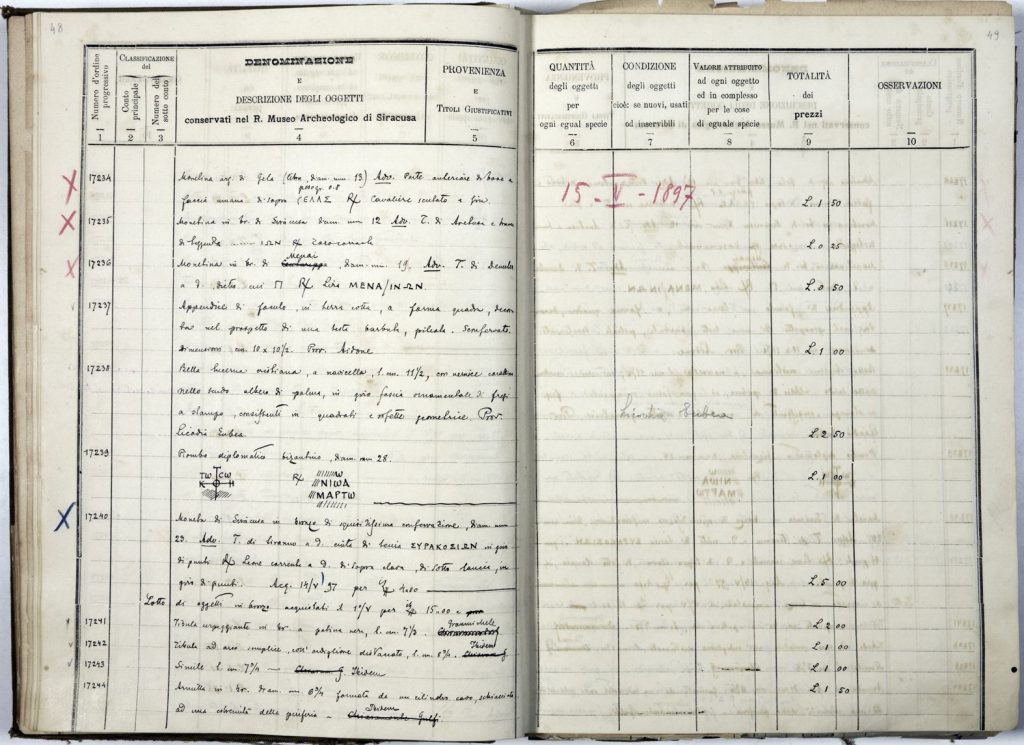 48
Numero d'ordine progressivo
CLASSIFICAZIONE del
Conto principale
Numero del sotto conto
DENOMINAZIONE
E
DESCRIZIONE DEGLI OGGETTI
conservati nel R. Museo Archeologico di Siracusa
PROVENIENZA
E
TITOLI GIUSTIFICATIVI
1 2 3 4 5
17234 Monetina arg. di Gela (litra, diam. mm 13) Adv. Parte anteriore di bove a
pesogr. 0.8
faccia umana di sopra ΓΕΛΑΣ R/ Cavaliere scutato a sin.
17235 Monetina in br. di Siracusa diam. mm 12 Adv. T. di Arethusa e tracce
di leggenda ...... ΙΩΝ R/
Menai
17236 Monetina in br. di diam. mm. 19. Adv. T. di Demetra
a d., dietro cui Π R/ Lira ΜΕΝΑ/ΙΝΩΝ.
17237 Appendice di focolo, in terra cotta, a forma quadra, decora
ta nel prospetto di una testa barbuta, pileata. Conservato.
Dimensioni cm. 10 x 10 1/2. Prov. Aidone
17238 Bella lucerna cristiana, a navicella, l. cm. 11 1/2, con vernice corallina
nello scudo albero di palma, in giro fascia ornamentale di fregi
a stampo, consistenti in quadrati e rosette geometriche. Prov.
Licodia Eubea.
17239 Piombo diplomatico bizantino, diam. mm 28.
ΤΩ CΩ
Κ Η
R/
Ω
ΝΙΩΑ
ΜΑΡΤΩ
17240 Moneta di Siracusa in bronzo di squisitissima conservazione, diam. mm
23. Adv. T. di tiranno a d. cinto di tenia ΣΥΡΑΚΟΣΙΩΝ in giro
di punti R/ Leone corrente a d. di sopra clava, di sotto lancia, in
giro di punti. Acq. 14/V 97 per £ 4.00
Lotto di oggetti in bronzo acquistati il 1°/V per £ 15.00 e
17241 Fibula serpeggiante in br. a patina nera, l. cm. 7 1/2. Ioanni Mele
17242 Fibula ad arco semplice, coll'ardiglione distaccato, l. cm. 5 3/4. Ibidem
17243 Simile l. cm 7 3/4 — Ibidem
17244 Armilla in br. diam. cm 6 3/4 formata da un cilindro cavo, schiacciato
ad una estremità della periferia — Ibidem
49
QUANTITÀ
degli oggetti
per
ogni egual specie
CONDIZIONE
degli oggetti
cioè: se nuovi, usati
od inservibili
VALORE ATTRIBUITO
ad ogni oggetto
ed in complesso
per le cose
di eguale specie
TOTALITÀ
dei
prezzi
OSSERVAZIONI
6 7 8 9 10
15 - V - 1897
L. 1 50
L. 0 25
L. 0 50
L. 1 00
Licodia Eubea
L. 2 50
L. 1 00
L. 5 00
L. 2 00
L. 1 00
L. 1 00
L. 1 50